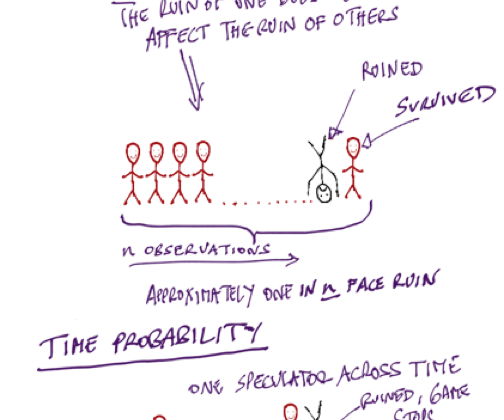 THE RUIN OF ONE DOES
AFFECT THE RUIN OF OTHERS
RUINED
SURVIVED
n OBSERVATIONS
APPROXIMATELY ONE IN n FACE RUIN
TIME PROBABILITY
ONE SPECULATOR ACROSS TIME
RUINED, GAME
STOPS